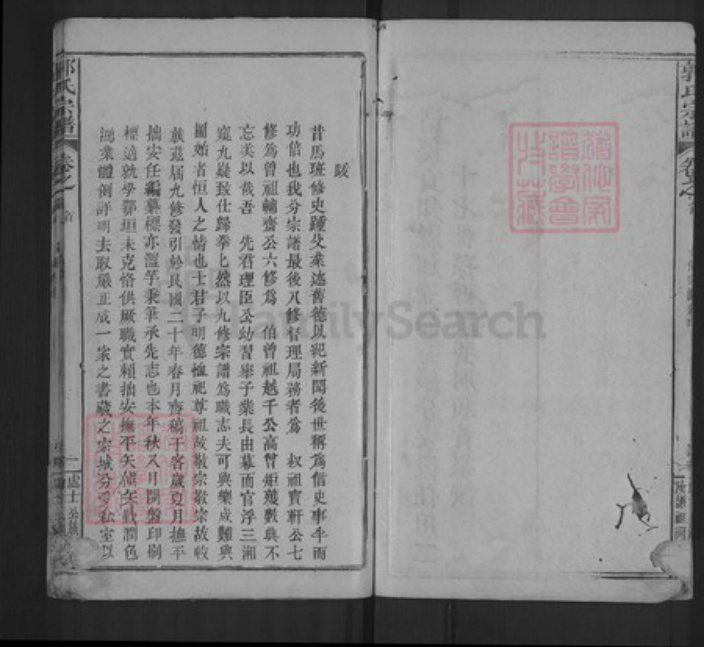 跋
昔馬班修史踵父業述舊德以紀新聞後世稱為信史事半而
功倍也我分宗譜最後八修督理局務者為 叔祖賣軒公七
修為曾祖輔齋公六修為 伯曾祖越千公高曾矩矱數典不
忘美以哉吾 先君理臣公幼習舉子業長由幕而官浮三湘
窺九疑致仕歸拳匕然以九修宗譜為職志夫可與樂成難與
圖始者恒人之情也士君子明德恤祀尊祖故敬宗敬宗故收
族茲屆九修發引於民國二十年春月齊稿于客歲夏月撫平
拙安任編纂標亦濫竽秉筆承先志也本年秋八月開盤印刷
標適就學鄂垣未克恪供厥職實賴拙安撫平矢慎矢勤潤色
鴻業體例詳明去取嚴正成一家之書藏之宗城分受私室以
郭氏宗譜
卷之
首
跋
一
處士公
郭氏宗譜
卷之
首
FamilySearch